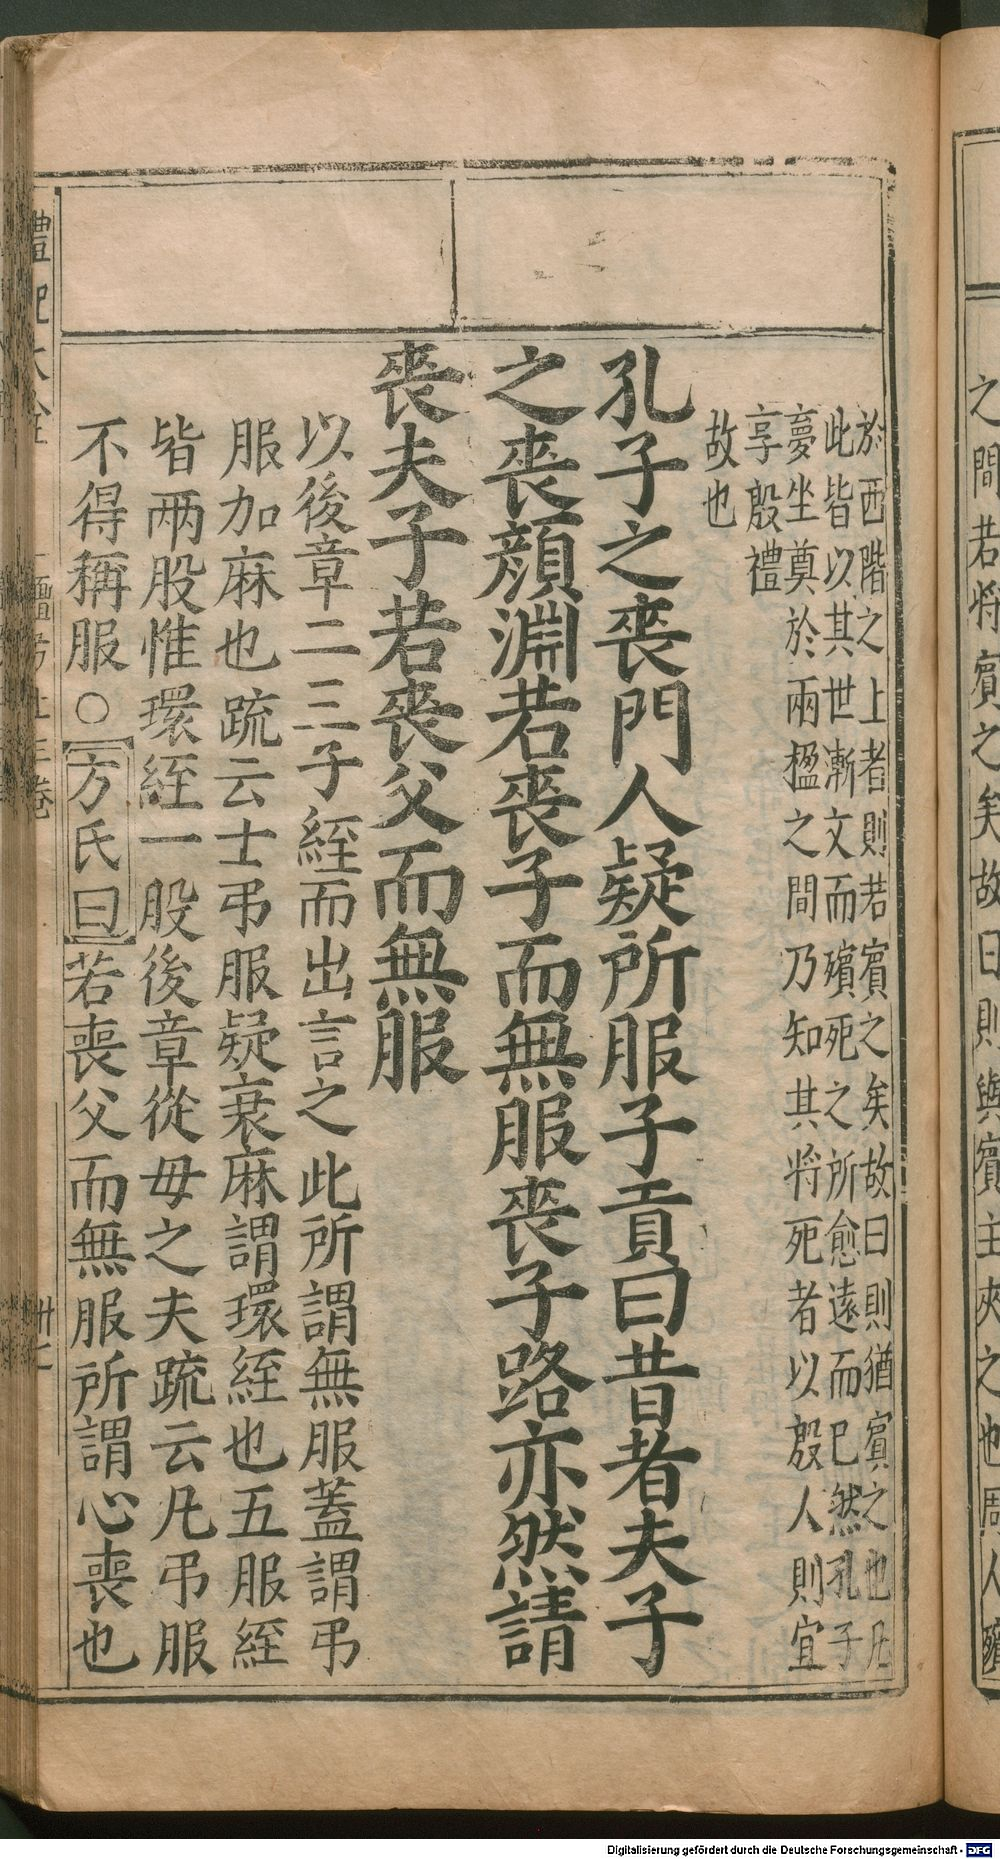 之間若将賔之矣故曰則與賔主夾之也周人殯
於西階之上者則若賔之矣故曰則猶賔之也凡
此皆以其世漸文而殯死之所愈遠而巳然孔子
夣坐奠於兩楹之間乃知其将死者以殷人則宜
享殷禮
故也
孔子之喪門人疑所服子貢曰昔者夫子
之喪顔淵若喪子而無服喪子路亦然請
喪夫子若喪父而無服
以後章二三子絰而出言之此所謂無服蓋謂弔
服加麻也疏云士弔服疑衰麻謂環絰也五服絰
皆兩股惟環絰一股後章從母之夫疏云凡弔服
不得稱服○方氏曰若喪父而無服所謂心喪也
禮記大全
檀弓上三卷
Digitalisierung gefördert durch die Deutsche Forschungsgemeinschaft - DFG